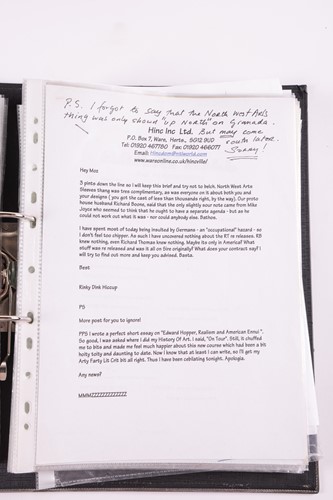 P.S. I forgot to say that the North West Arts
thing was only shown "up North" on Granada.
But may come
south later.
Sorry!
Hinc Inc Ltd.
P.O. Box 7, Ware, Herts, SG12 9UD
Tel: 01920 467780 Fax: 01920 466077
Email:
www.wareonline.co.uk/hincville/
Hey Moo
3 pints down the line so I will keep this brief and try not to belch. North West Arts
Sleeves thang was tres complimentary, as was everyone on it about both you and
your designs ( you got the cast of less than thousands right, by the way). Our proto
house husband Richard Boone, said that the only slightly sour note came from Mike
Joyce who seemed to think that he ought to have a separate agenda - but as he
could not work out what it was - nor could anybody else. Bathos.
I have spent most of today being insulted by Germans - an "occupational" hazard - so
I don't feel too chipper. As such I have uncovered nothing about the RT re releases. KB
knew nothing, even Richard Thomas knew nothing. Maybe its only in America? What
stuff was re-released and was it all on Sire originally? What does your contract say? I
will try to find out more and keep you advised. Basta.
Best
Kinky Dink Hiccup
PS
More post for you to ignore!
PPS I wrote a perfect short essay on "Edward Hopper, Realism and American Ennui ".
So good, I was asked where I did my History Of Art. I said, "On Tour". Still, it chuffed
me to bits and made me feel much happier about this new course which had been a bit
hoity toity and daunting to date. Now I know that at least I can write, so I'll get my
Arty Farty Lit Crit bit all right. Thus I have been ceblating tonight. Apologia.
Any news?
MMMZZZZZZZZZZZZ